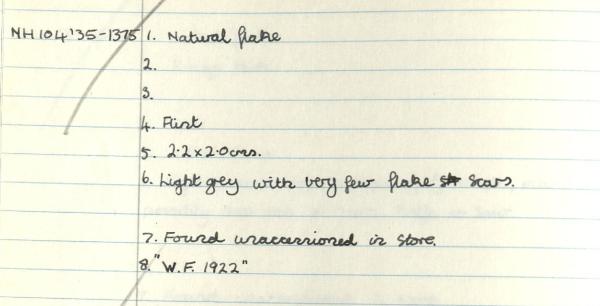 NH104'35-1375 1. Natural flake
2.
3.
4. Flint
5. 2.2 x 2.0cms.
6. Light grey with very few flake scars.
7. Found unaccessioned in store.
8. "W.F. 1922"